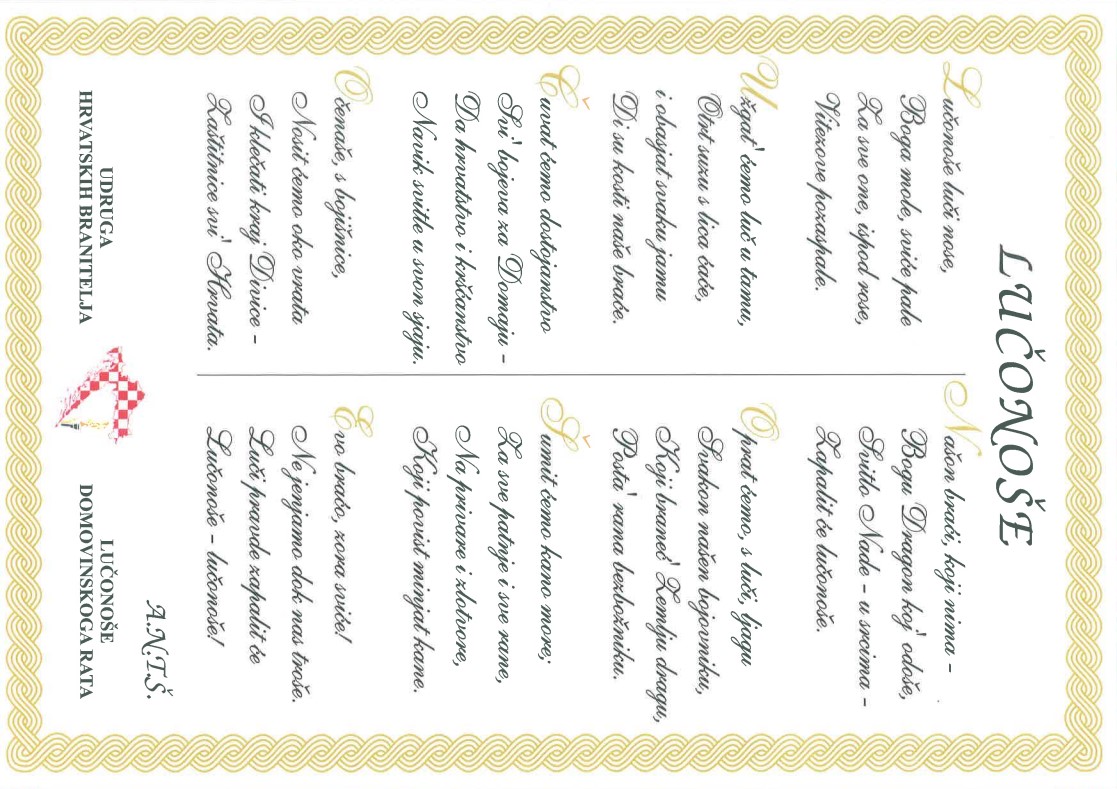 LUČONOŠE
Lučonoše luči nose,
Boga mole, sviće pale
Za sve one, ispod rose,
Vitezove pozaspale.
Užgat' ćemo luč u tamu,
Otrt suzu s lica ćaće,
i obasjat svaku jamu
Di su kosti naše braće.
Čuvat ćemo dostojanstvo
Svi' bojeva za Domaju -
Da hrvatstvo i kršćanstvo
Navik svitle u svon sjaju.
Očenaše, s bojišnice,
Nosit ćemo oko vrata
I kležati kraj Divice -
Zaštitnice svi' Hrvata.
Našon braći, koji nima -
Bogu Dragon koj' odoše,
Svitlo Nade - u srcima -
Zapalit će lučonoše.
Oprat ćemo, s luči, ljagu
Svakon našen bojovniku,
Koji braneć' Zemlju dragu,
Posta' rana bezbožniku.
Šumit ćemo kano more;
Za sve patnje i sve rane,
Na privare i zlotvore,
Koji povist minjat kane.
Evo braćo, zora sviće!
Ne jenjamo dok nas troše.
Luči pravde zapalit će
Lučonoše - lučonoše!
A.N.T.Š.
UDRUGA
HRVATSKIH BRANITELJA
LUČONOŠE
DOMOVINSKOGA RATA